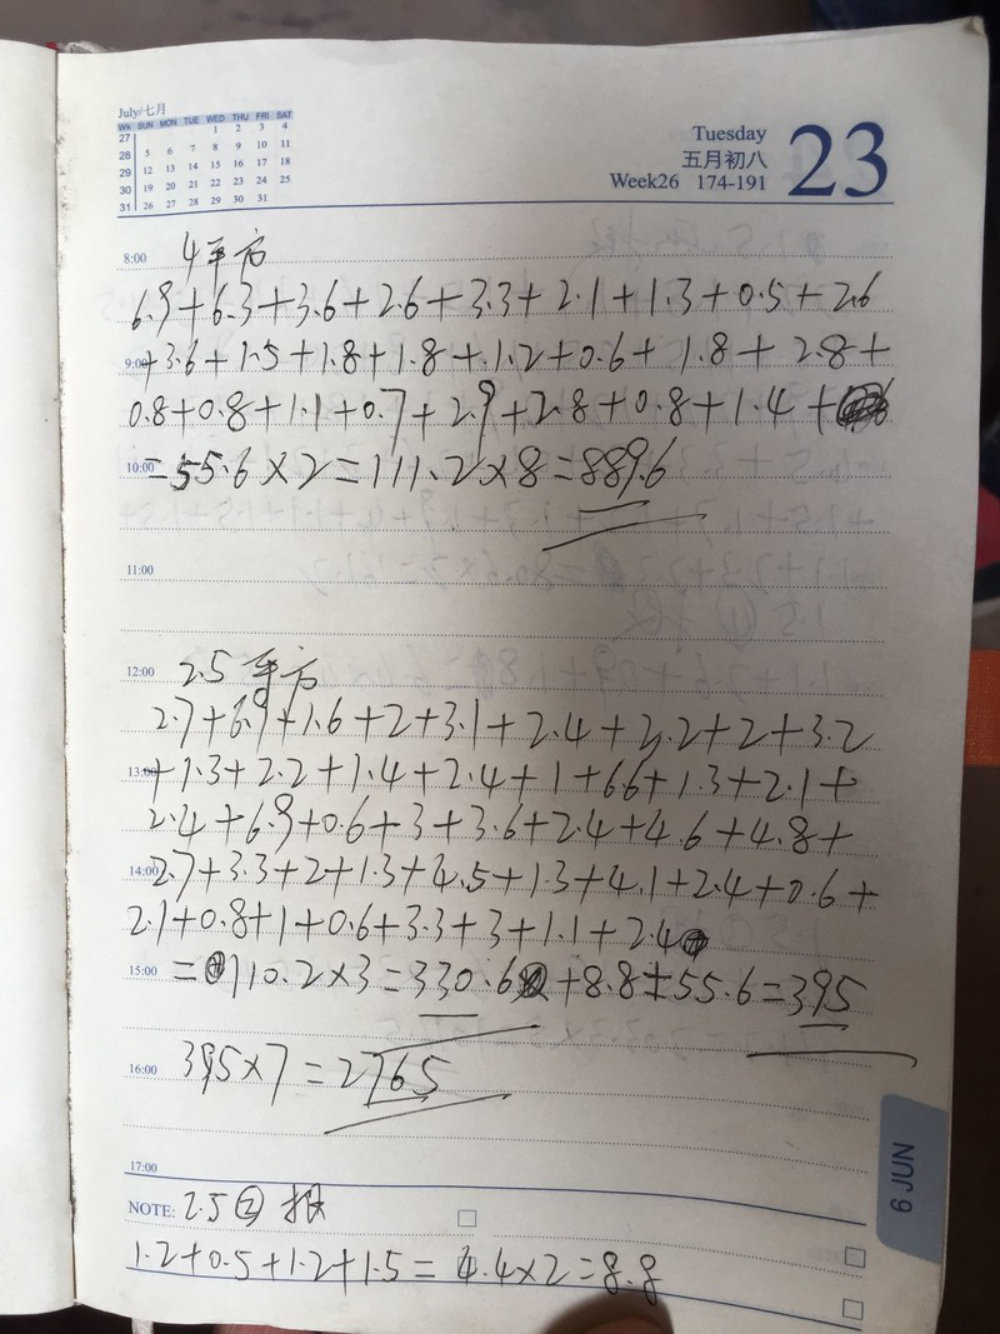 July/七月
Wk SUN MON TUE WED THU FRI SAT
27 1 2 3 4
28 5 6 7 8 9 10 11
29 12 13 14 15 16 17 18
30 19 20 21 22 23 24 25
31 26 27 28 29 30 31
Tuesday
五月初八
Week26 174-191
23
8:00 4平方
6.9+6.3+3.6+2.6+3.3+2.1+1.3+0.5+2.6
9:00 +3.6+1.5+1.8+1.8+1.2+0.6+1.8+2.8+
0.8+0.8+1.1+0.7+2.9+2.8+0.8+1.4+
10:00 =55.6×2=111.2×8=889.6
11:00
12:00 2.5平方
2.7+6.9+1.6+2+3.1+2.4+2.2+2+3.2
13:00 +1.3+2.2+1.4+2.4+1+6.6+1.3+2.1+
2.4+6.9+0.6+3+3.6+2.4+4.6+4.8+
14:00 2.7+3.3+2+1.3+4.5+1.3+4.1+2.4+0.6+
2.1+0.8+1+0.6+3.3+3+1.1+2.4
15:00 =110.2×3=330.6+8.8+55.6=395
16:00 395×7=2765
17:00
6 JUN
NOTE: 2.5②根
1.2+0.5+1.2+1.5=4.4×2=8.8